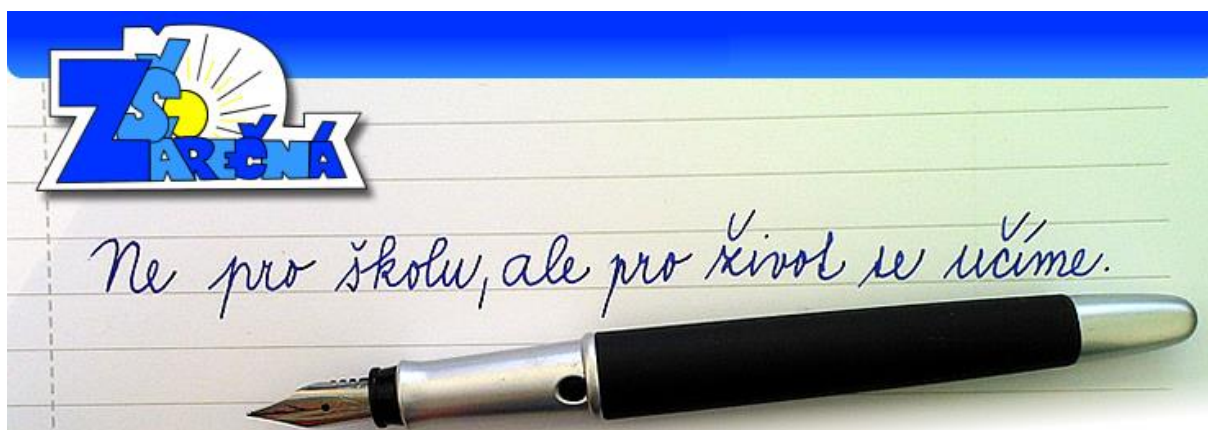 ZŠ ZÁREČNÁ
Ne pro školu, ale pro život se učíme.